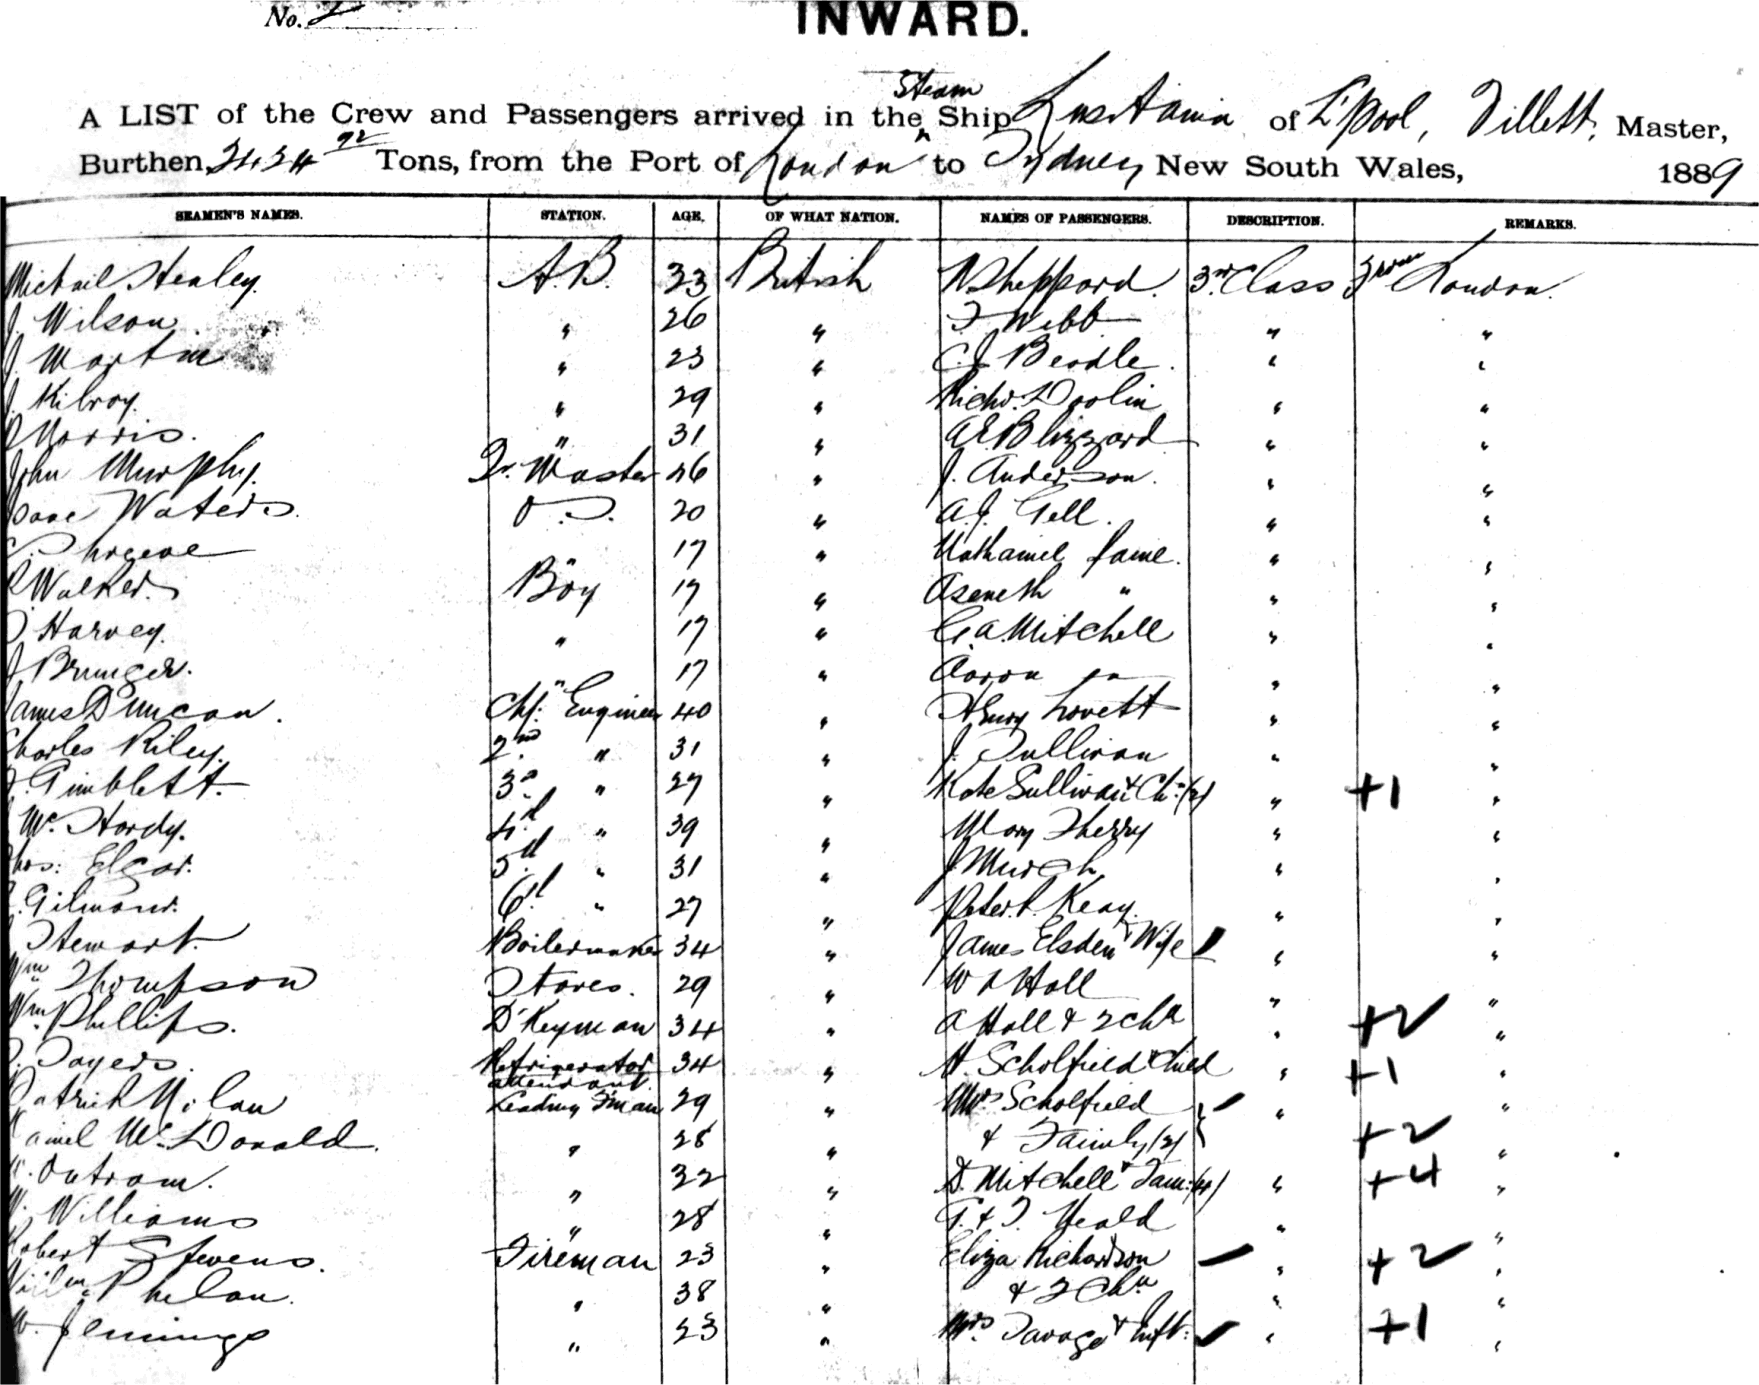 No. 2
INWARD.
Steam
A LIST of the Crew and Passengers arrived in the ^ Ship Lusitania of L'pool, Tillett, Master,
Burthen 2424 92 Tons, from the Port of London to Sydney New South Wales, 1889
SEAMEN'S NAMES. STATION. AGE. OF WHAT NATION. NAMES OF PASSENGERS. DESCRIPTION. REMARKS.
Michail Healey. A.B. 33 British N Sheppard. 3rd Class From London.
J. Wilson. " 26 " F Webb " "
J. Martin " 23 " C.J. Beadle. " "
J. Kilroy. " 29 " Richd. Doolin " "
Morris. " 31 " A.E. Blizzard " "
John Murphy. Qr. Master 46 " J. Anderson. " "
Isaac Waters. O.S. 20 " A.J. Gell. " "
" 17 " Nathaniel Came. " "
Walker. Boy 17 " Aseneth " " "
Harvey. " 17 " G.A. Mitchell " "
J Brunger. " 17 " Aaron " "
James Duncan. Chf. Engineer 40 " Henry Lovett " "
Charles Riley. 2nd " 31 " J. Sullivan " "
Gimblett. 3rd " 27 " Kate Sullivan & Chn (2) " +1 "
Mc. Hardy. 4th " 39 " Mary Therry " "
Thos: Elgar. 5th " 31 " J Murch " "
Gilmour. 6th " 27 " Peter. Keay. " "
Stewart. Boilermaker 34 " James Elsden & Wife " "
Wm Thompson Stores. 29 " W Hall " "
Wm. Phillips. D'Keyman 34 " A Hall & 2 chn " +2 "
Sayers. Refrigerator attendant. 34 " H Scholfield & Child " +1 "
Patrick Nolan Leading F'man 29 " Mrs Scholfield " "
Daniel McDonald. " 28 " & Family (2) +2 "
Outram. " 32 " D. Mitchell & Fam: (4) " +4 "
W. Williams " 28 " G. & F. Heald " "
Robert Stevens. Fireman 23 " Eliza Richardson " +2 "
Willm. Phelan. " 38 " & 2 Chn " "
W. Jennings " 23 " Mrs Savage & Inft. " +1 "